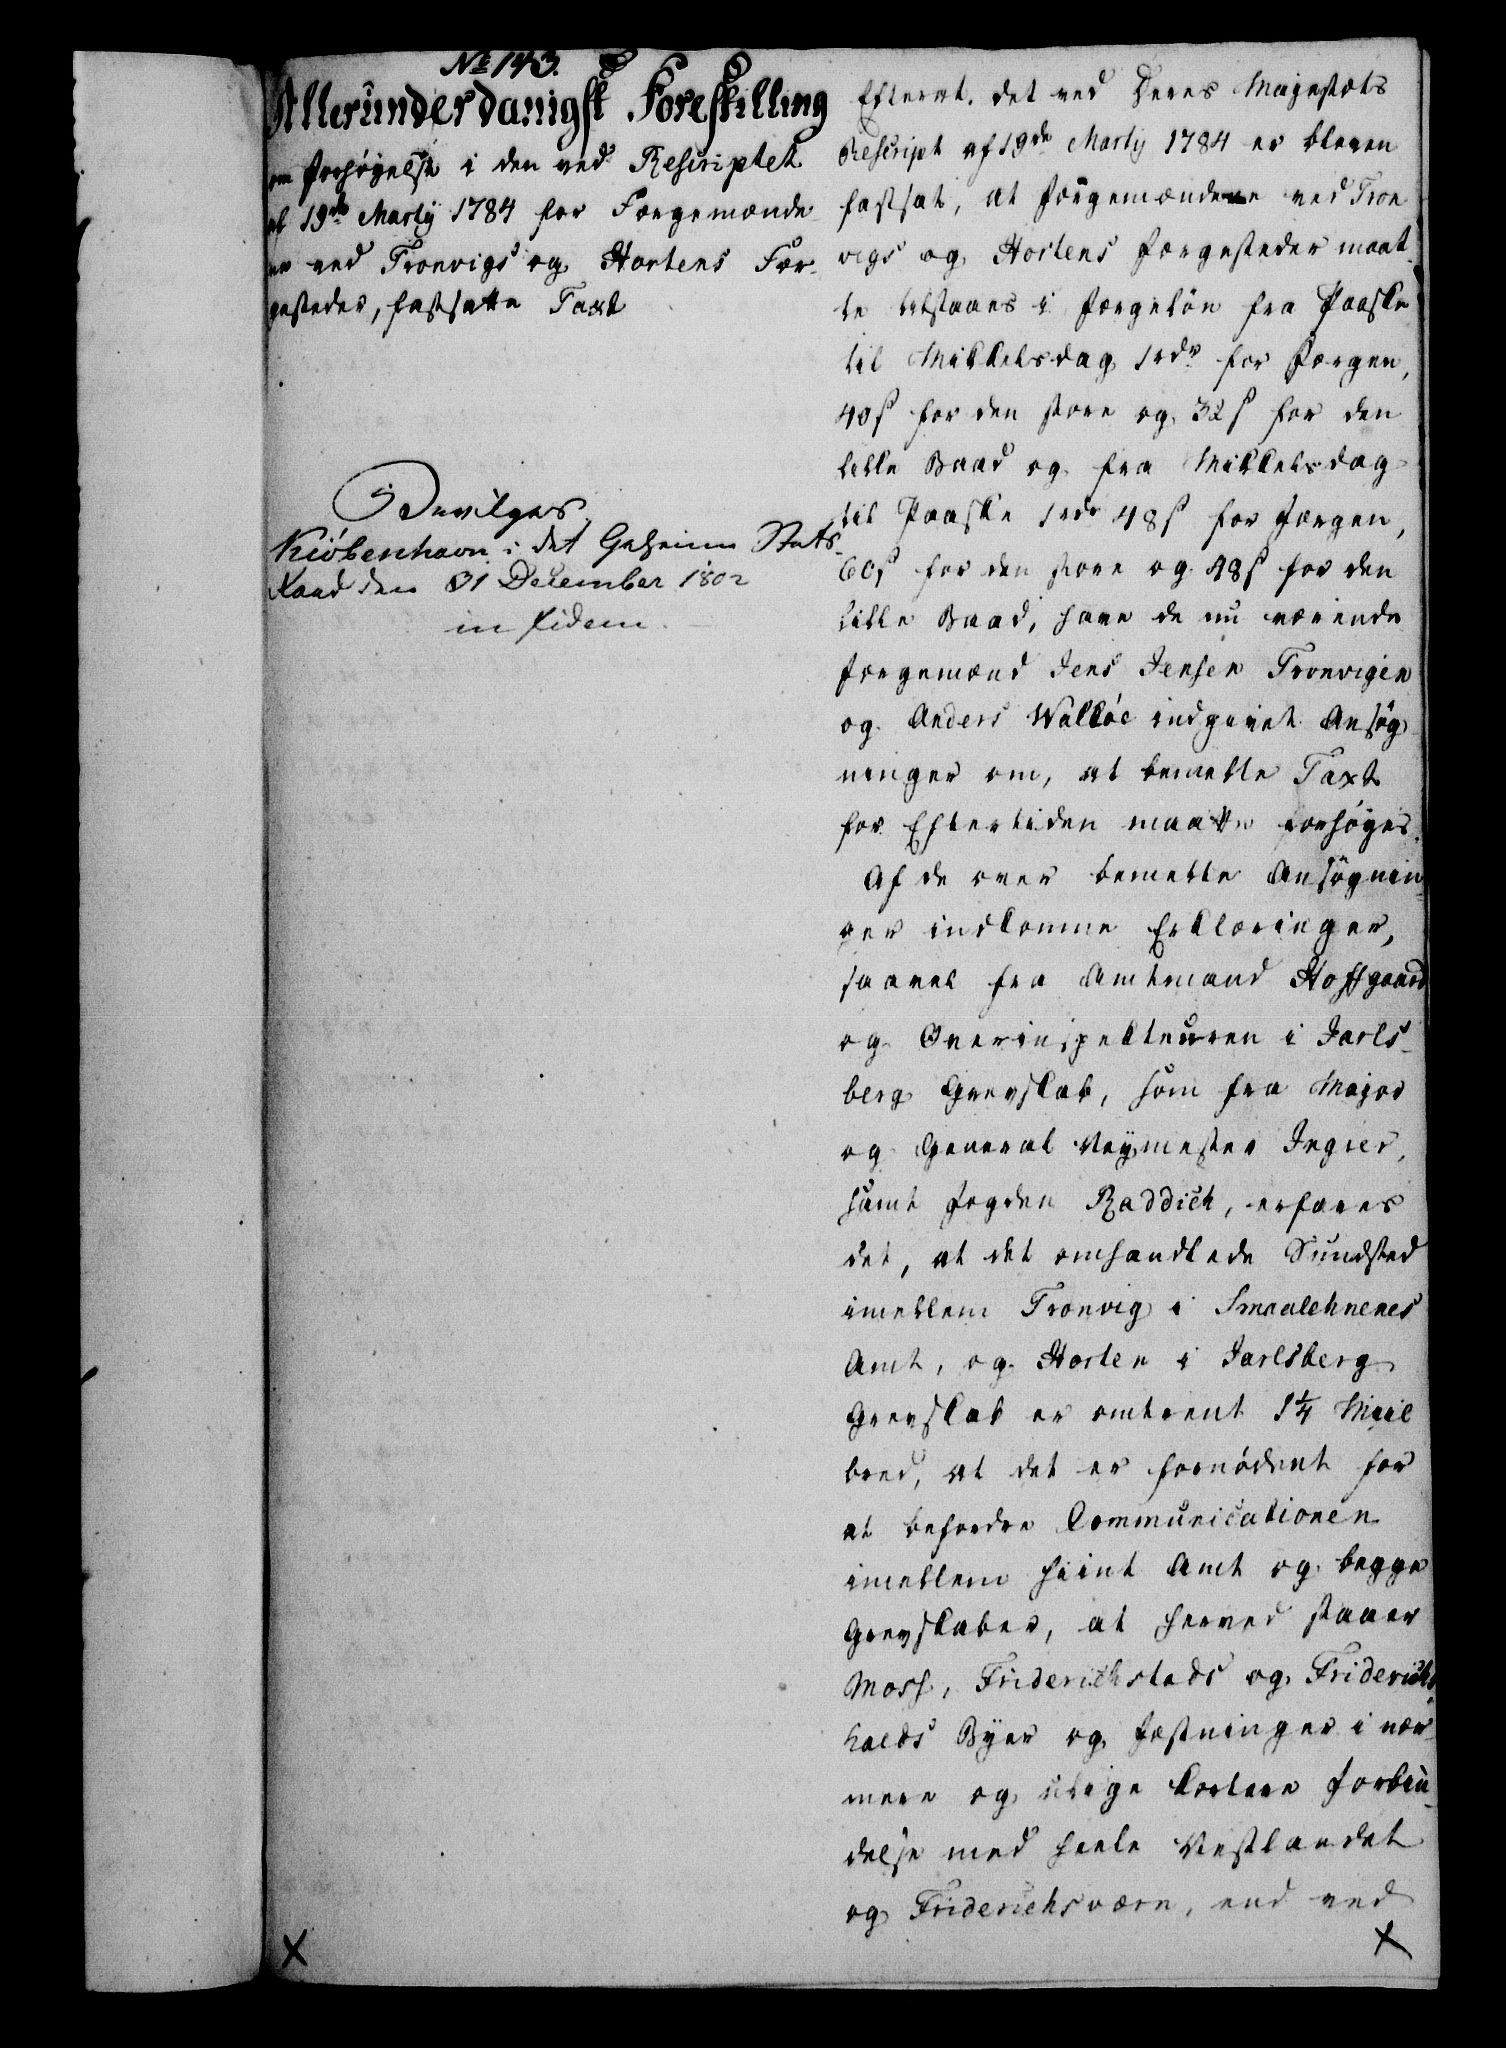 No 143.
Allerunderdanigst Forestilling
om Forhøyelse i den ved Rescriptet
af 19de Martij 1784 for Færgemænde-
ne ved Tronvigs og Hortens Fær-
gesteder, fastsatte Taxt
Bevilges
Kiöbenhavn i det Geheime Stats-
Raad den 31 December 1802
in fidem.
Efterat det ved Deres Majestæts
Rescript af 19de Martij 1784 er bleven
fastsat, at Færgemændene ved Tron
vigs og Hortens Færgesteder maat-
te tilstaaes i Færgelön fra Paaske
til Mikkelsdag 1rdr for Færgen,
40 s for den store og 32 s for den
lille Baad og fra Mikkelsdag
til Paaske 1rdr 48 s for Færgen,
60 s for den store og 48 s for den
lille Baad, have de nu værende
Færgemænd Jens Jensen Tronvigen
og Anders Wallöe indgivet Ansög-
ninger om, at bemelte Taxt
for Eftertiden maatte forhøyes.
Af de over bemelte Ansøgnin-
ger indkomne Erklæringer,
saavel fra Amtmand Hoffgaard
og Overinspekteuren i Jarls-
berg Grevskab, som fra Major
og General Veymester Ingier,
samt Fogden Raddich, erfares
det, at det omhandlede Sundsted
imellem Tronvig i Smaalehnenes
Amt, og Horten i Jarlsberg
Grevskab er omtrent 1¼ Miil
bred, at det er fornødent for
at befordre Communicationen
imellem hiint Amt og begge
Grevskaber, at herved staaer
Moss, Friderichstads og Friderichs
halds Byer og Fæstninger i nær-
mere og utige kortere Forbin-
delse med heele Vestlandet
og Friderichsværn, end ved